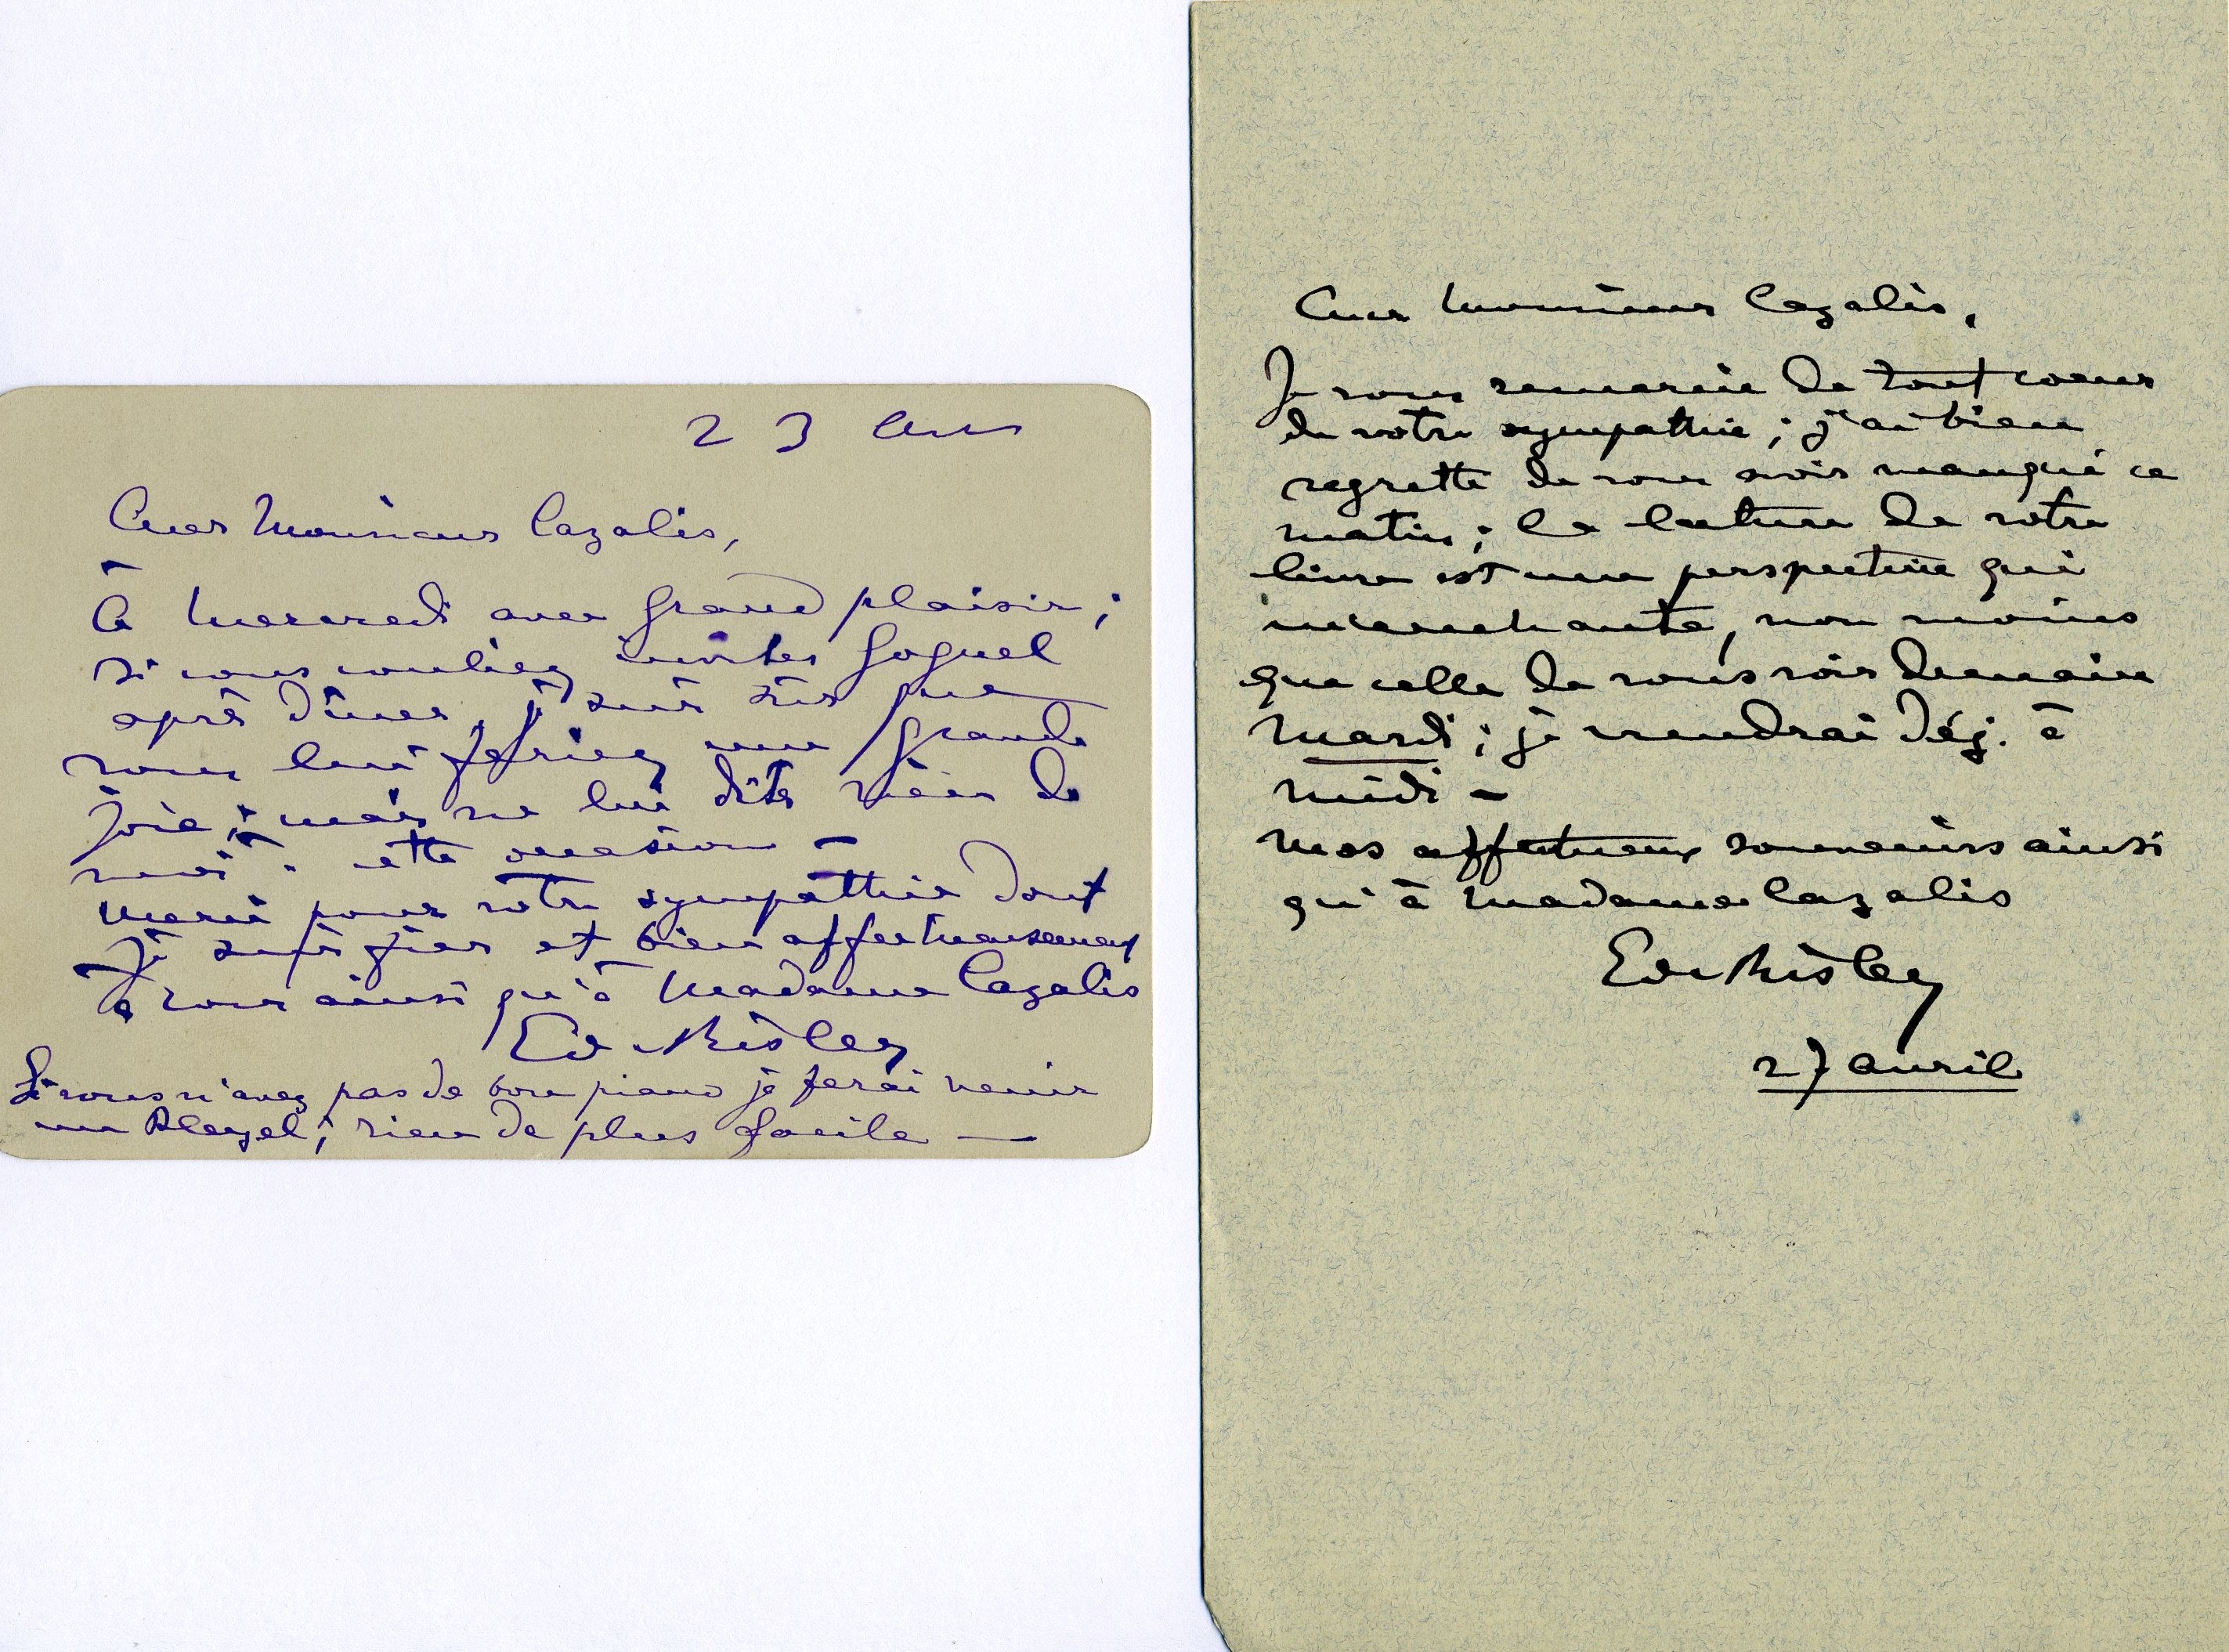 23
Cher Monsieur Cazalis,
à Mercredi avec grand plaisir ;
si vous vouliez inviter Goguel
après dîner, je suis sûr que
vous lui feriez une grande
joie ; mais ne lui dites rien de
moi à cette occasion —
Merci pour votre sympathie dont
je suis fier et bien affectueusement
à vous ainsi qu'à Madame Cazalis
Ed Risler
Si vous n'avez pas de bon piano je ferai venir
un Pleyel ; rien de plus facile —
Cher Monsieur Cazalis,
Je vous remercie de tout coeur
de votre sympathie ; j'ai bien
regretté de vous avoir manqué ce
matin ; la lecture de votre
livre est une perspective qui
m'enchante, non moins
que celle de vous voir demain
Mardi ; je viendrai déj. à
midi —
Mes affectueux souvenirs ainsi
qu'à Madame Cazalis
Ed Risler
27 avril